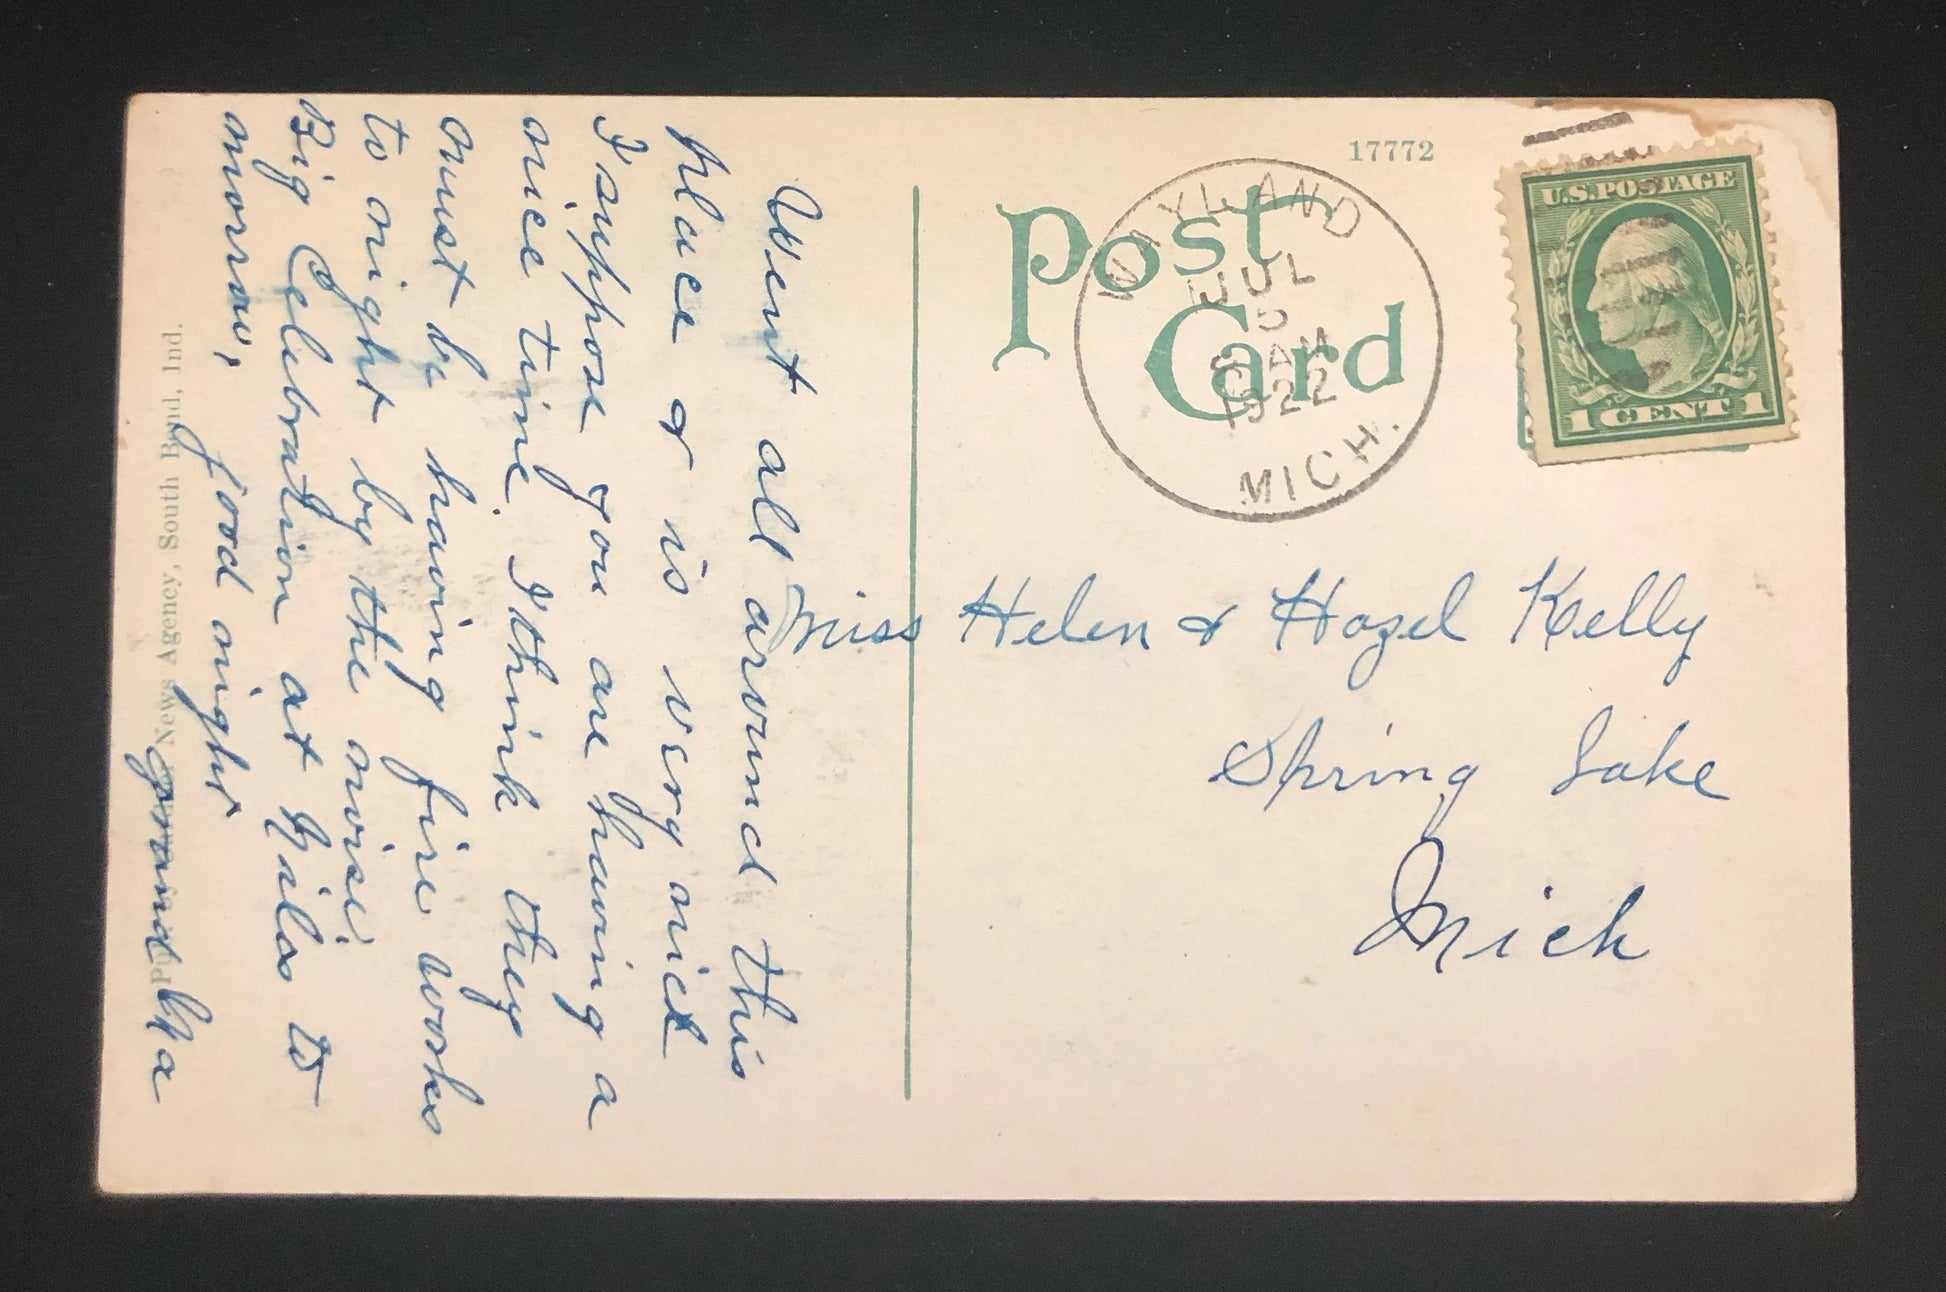 Went all around this
place & is very nice
I suppose you are having a
nice time. I think they
must be having fire works
to night by the noise
Big Celebration at Niles to
morrow,
good night
grand Ma
News Agency, South Bend, Ind.
Post
Card
17772
WAYLAND
JUL
5
8 AM
1922
MICH.
U.S. POSTAGE
1 CENT 1
Miss Helen & Hazel Kelly
Spring Lake
Mich